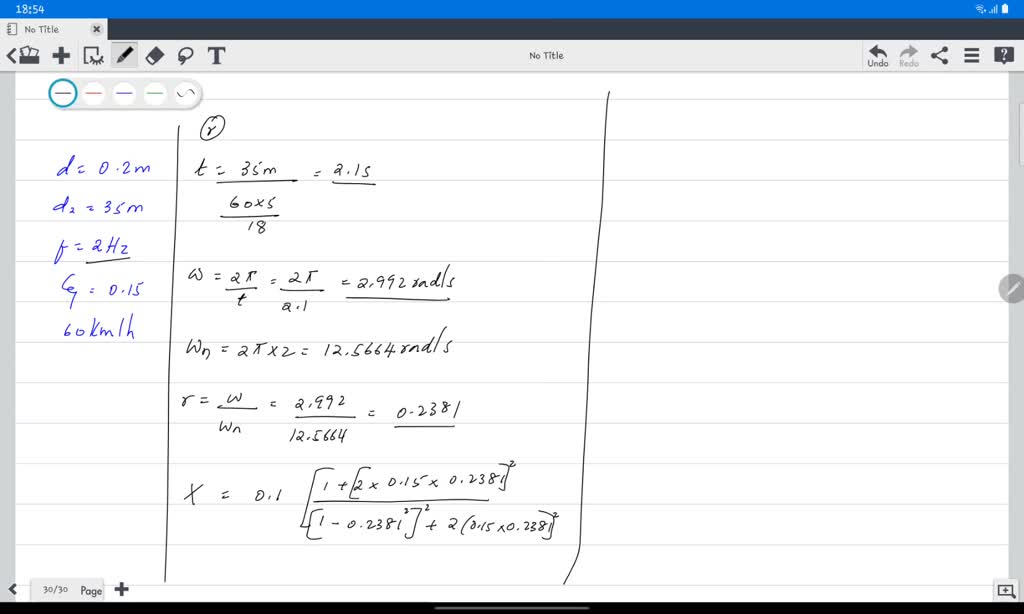 18:54
No Title
No Title
Undo
Redo
T
?
d = 0.2m
d₂ = 35m
f = 2Hz
ζ = 0.15
60km/h
r
t = 35m / (60×5 / 18) = 2.1s
ω = 2π / t = 2π / 2.1 = 2.992 rad/s
ωn = 2π×2 = 12.5664 rad/s
r = ω / ωn = 2.992 / 12.5664 = 0.2381
X = 0.1 [1 + [2 × 0.15 × 0.2381]² / [1 - 0.2381²]² + 2(0.15×0.238]²
30/30 Page